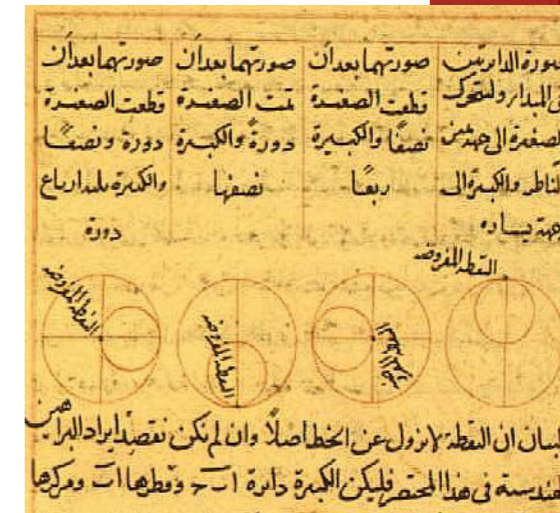 صورة الدايرتين
في المبدا ولتتحرك
الصغيرة الى جهة يمين
الناظر والكبيرة الى
جهة يساره
صورتهما بعد ان
قطعت الصغيرة
نصفا والكبيرة
ربعا
صورتهما بعد ان
تمت الصغيرة
دورة والكبيرة
نصفها
صورتهما بعد ان
قطعت الصغيرة
دورة ونصفا
والكبيرة ثلثة ارباع
دورة
النقطة المفروضة
النقطة المفروضة
النقطة المفروضة
لبيان ان النقطة لا تزول عن الخط اصلا وان لم نكن نقصد ايراد البراهين
الهندسية في هذا المختصر فليكن الكبيرة دائرة ا ب ح وقطرها ا ب ومركزها